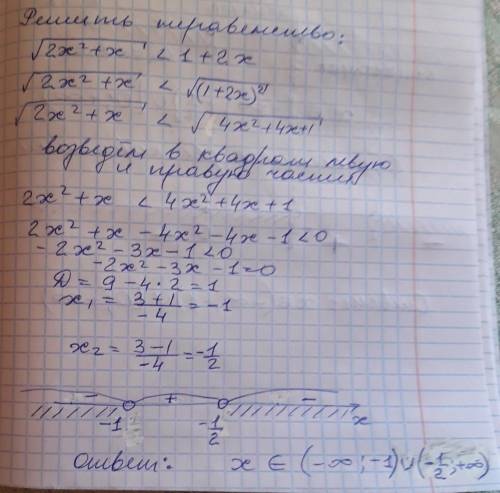 Решить неравенство:
√2x²+x < 1+2x
√2x²+x < √(1+2x)²
√2x²+x < √4x²+4x+1
возведём в квадрат левую
и правую части
2x²+x < 4x²+4x+1
2x²+x-4x²-4x-1<0
-2x²-3x-1<0
-2x²-3x-1=0
Д = 9-4·2=1
x₁ = (3+1)/(-4) = -1
x₂ = (3-1)/(-4) = -1/2
- + -
-1 -1/2 x
Ответ: x ∈ (-∞;-1)∪(-1/2;+∞)